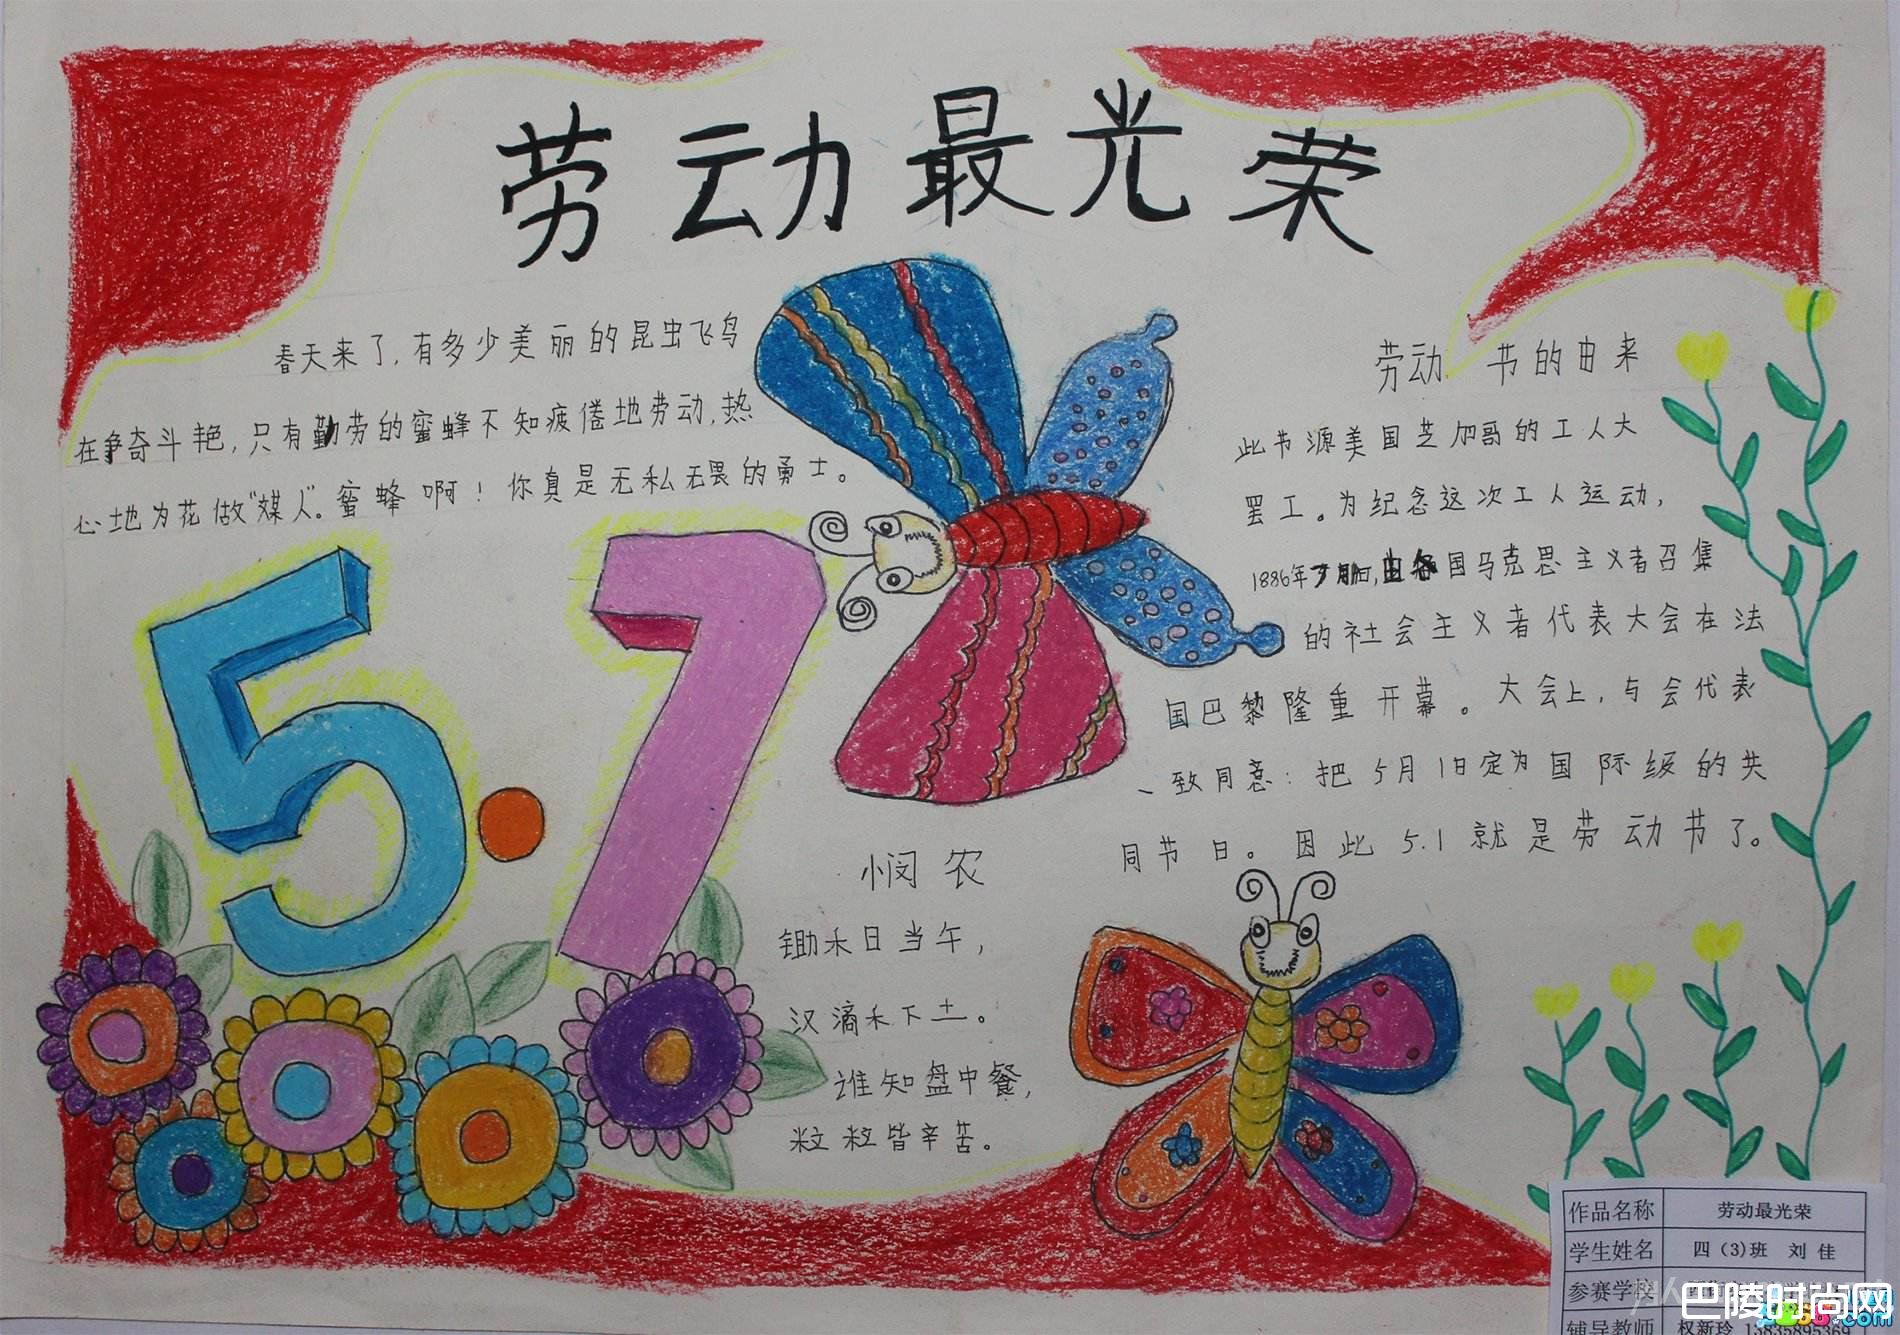 劳动最光荣
春天来了,有多少美丽的昆虫飞鸟
在争奇斗艳,只有勤劳的蜜蜂不知疲倦地劳动,热
心地为花做“媒人”。蜜蜂啊!你真是无私无畏的勇士。
5·1
劳动节的由来
此节源美国芝加哥的工人大
罢工。为纪念这次工人运动,
1886年7月,由各国马克思主义者召集
的社会主义者代表大会在法
国巴黎隆重开幕。大会上,与会代表
一致同意:把5月1日定为国际级的共
同节日。因此5.1就是劳动节了。
悯农
锄禾日当午,
汉滴禾下土。
谁知盘中餐,
粒粒皆辛苦。
作品名称 劳动最光荣
学生姓名 四(3)班 刘佳
参赛学校
辅导教师 权新玲 15835895369
巴陵时尚网